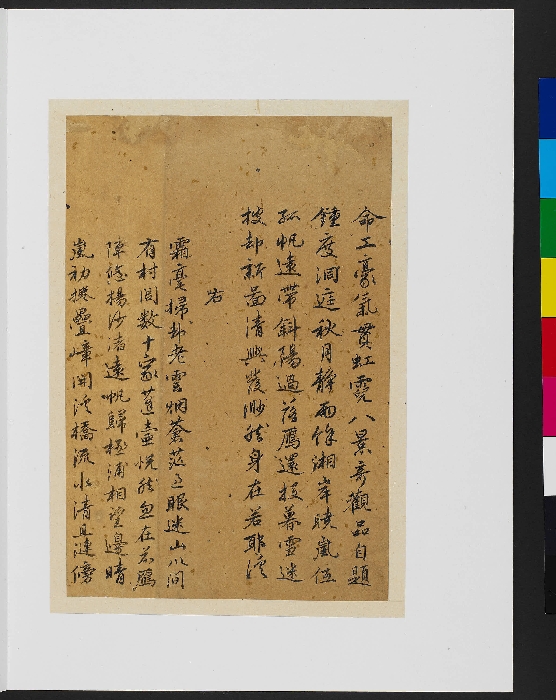 命工豪氣貫虹霓八景奇觀品自題
鍾度洞庭秋月靜雨餘湘岸曉嵐伍
孤帆遠帶斜陽過落鴈還投暮雲迷
披却新圖清興發渺然身在若耶溪
右
霜毫掃却老雲烟蒼茫眼迷山川間
有村間數十家蓬壺恍然忽在若鴈
陣悠揚沙渚遠帆歸極浦相望邊晴
嵐初擁疊嶂開溪橋流水清且漣傍